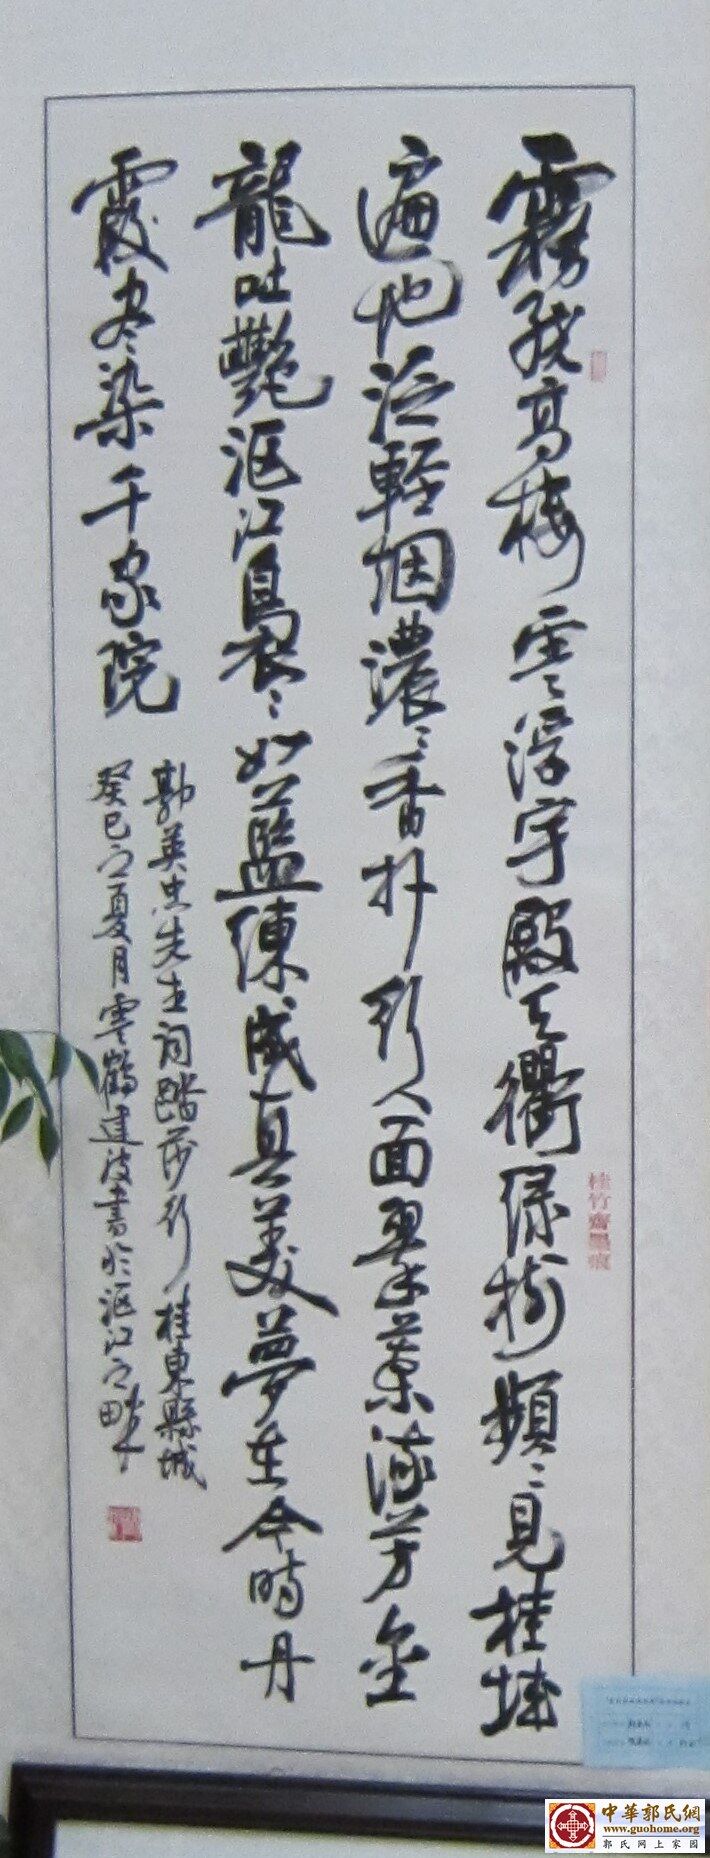 霧繞高楼雲浮宇殿天衢绿樹頻〻見桂城
遍地泛輕烟濃〻香扑行人面翠葉流芳金
龍吐艷沤江裊〻如藍練成真美夢在今時丹
霞尽染千家院
郭英忠先生詞踏莎行桂東縣城
癸巳之夏月雲鶴建波書於沤江之畔
桂竹齋墨痕
中華郭氏網
www.guohome.org
郭氏网上家园